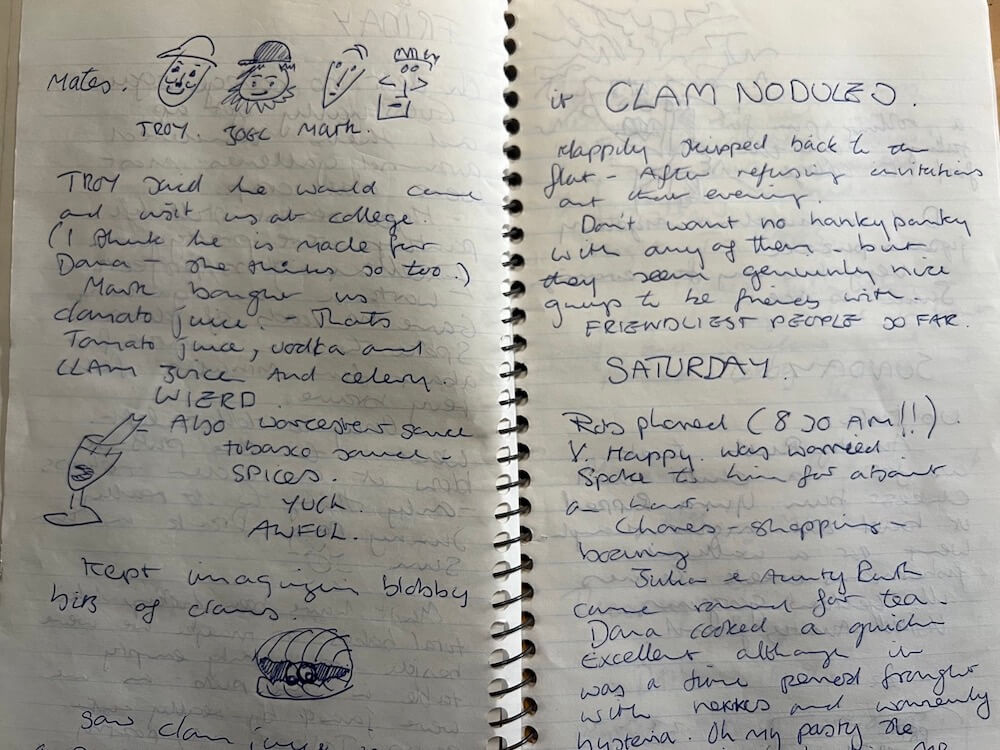 Mates.
TROY. JOEL MARK.
TROY said he would come
and visit us at college.
(I think he is made for
Dana - she thinks so too.)
Mark bought us
clamato juice. - Thats
Tomato juice, vodka and
CLAM juice And celery.
WIERD.
Also worcestent sauce
tobasco sauce -
SPICES.
YUCK.
AWFUL.
Kept imagizin blobby
bits of clams.
Saw clam
it CLAM NODULES.
Happily skipped back to the
flat - After refusing invitations
out that evening.
Don't want no hanky panky
with any of them - but
they seem genuinly nice
group to be friends with.
FRIENDLIEST PEOPLE SO FAR.
SATURDAY.
Rob phoned (8 30 AM!!).
V. Happy. was worried
Spoke to him for about
an hour
Chores - shopping -
boering
Julia & Aunty Ruth
came round for tea.
Dana cooked a quiche
Excellent although it
was a time period fraught
with and
hysteria. Oh my pasty the